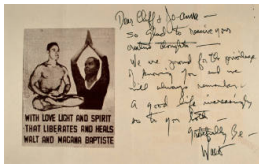 WITH LOVE LIGHT AND SPIRIT
THAT LIBERATES AND HEALS
WALT AND MAGANA BAPTISTE
Dear Cliff & Jo-anne -
so glad to receive your
thoughts -
We are proud for the privilege
of knowing you and we
will always remember.
A good life increasingly
so to you both
Gratefully Be -
Walt